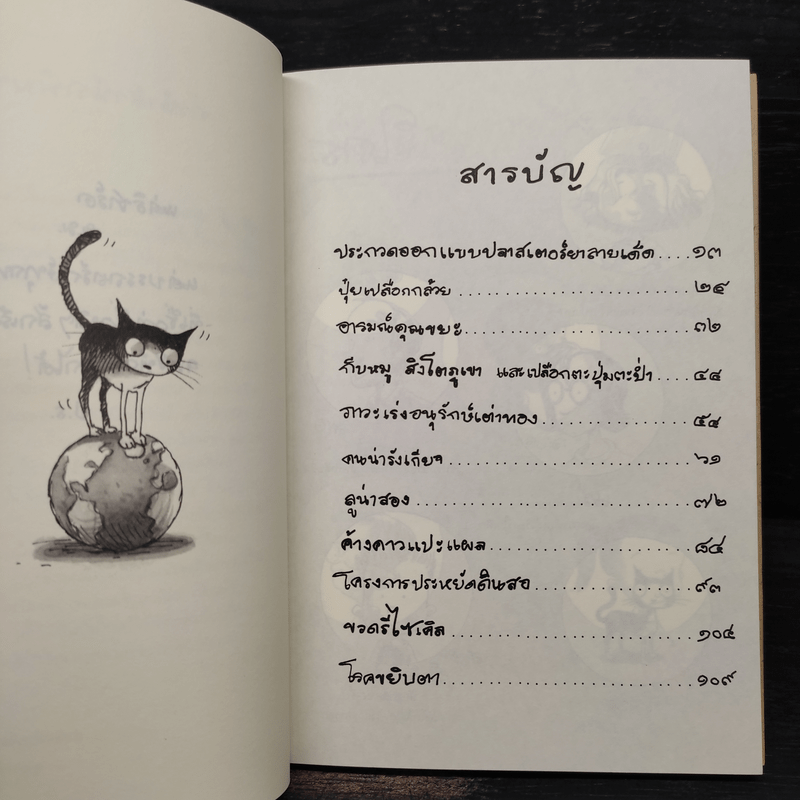 สารบัญ
ประกวดออกแบบปลาสเตอร์ยาลายเด็ด....๑๓
ปุ๋ยเปลือกกล้วย..........................๒๔
อารมณ์คุณขยะ.........................๓๒
ก็บหมู สิงโตภูเขา และเปลือกตะปุ่มตะป่ำ....๔๔
ภาวะเร่งอนุรักษ์เต่าทอง................๕๔
คนน่ารังเกียจ..........................๖๑
ลูน่าสอง...............................๗๒
ค้างคาวแปะแผล.......................๘๔
โครงการประหยัดดินสอ................๙๓
ขวดรีไซเคิล...........................๑๐๔
โรคขยิบตา...........................๑๐๙